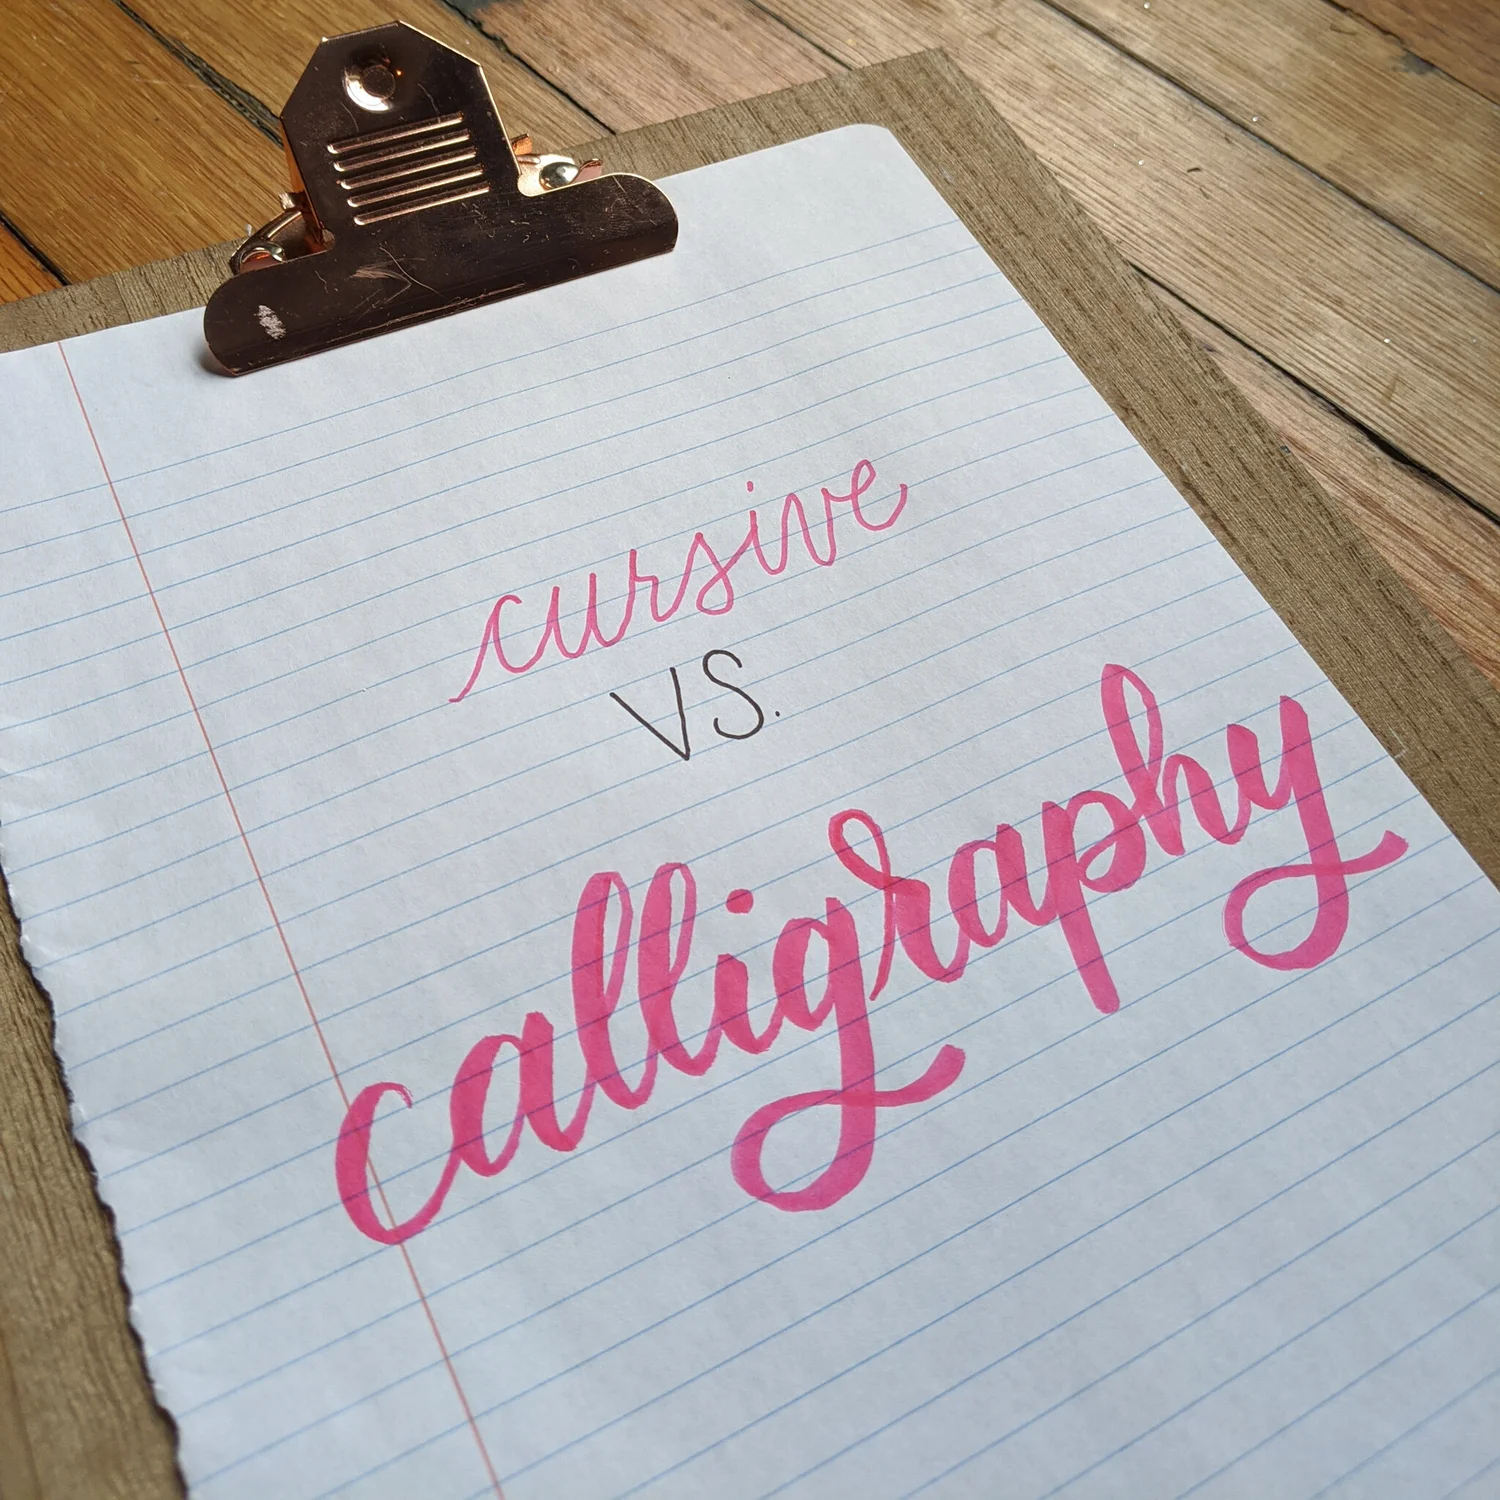 cursive
vs.
calligraphy